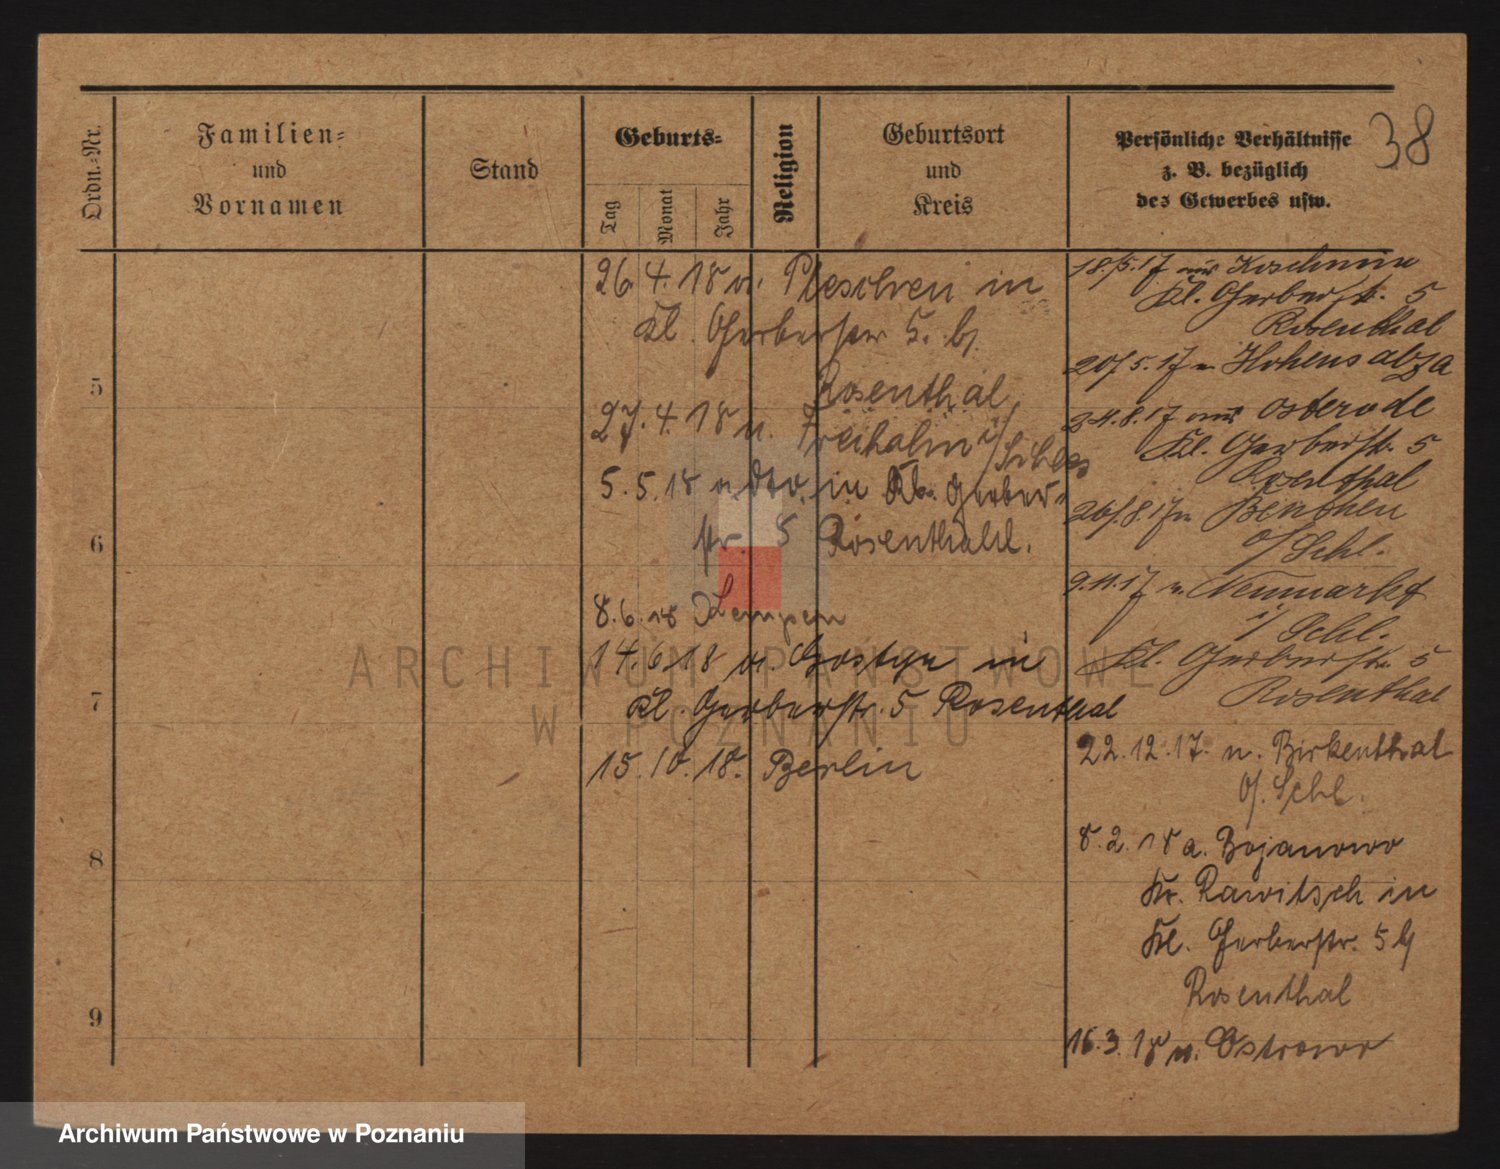 38
Ordn.-Nr.
Familien-
und
Vornamen
Stand
Geburts-
Tag
Monat
Jahr
Religion
Geburtsort
und
Kreis
Persönliche Verhältnisse
z. B. bezüglich
des Gewerbes usw.
5
6
7
8
9
18./5.17 aus Koschmin
Kl. Gerberstr. 5
Rosenthal
20/5.17 n. Hohensalza
24.8.17 aus Osterode
Kl. Gerberstr. 5
Rosenthal
26/8.17 n Benthen
O/Schl.
9.11.17 n. Neumarkt
i/Schl.
Kl. Gerberstr. 5
Rosenthal
22.12.17. n. Birkenthal
O/.Schl.
8.2.18 a. Bojanowo
Kr. Rawitsch in
Kl. Gerberstr. 5 b/
Rosenthal
16.3.18 n. Ostrowo
26.4.18 v. Pleschen in
Kl. Gerberstr 5. b/
Rosenthal
27.4.18 n. Freihahn i/Schles
5.5.18 v dto. in Kl. Gerber-
str. 5 Rosenthal.
8.6.18 Kempen
14.6.18 v. Gostyn in
Kl. Gerberstr. 5 Rosenthal
15.10.18. Berlin
ARCHIWUM PAŃSTWOWE
W POZNANIU
Archiwum Państwowe w Poznaniu